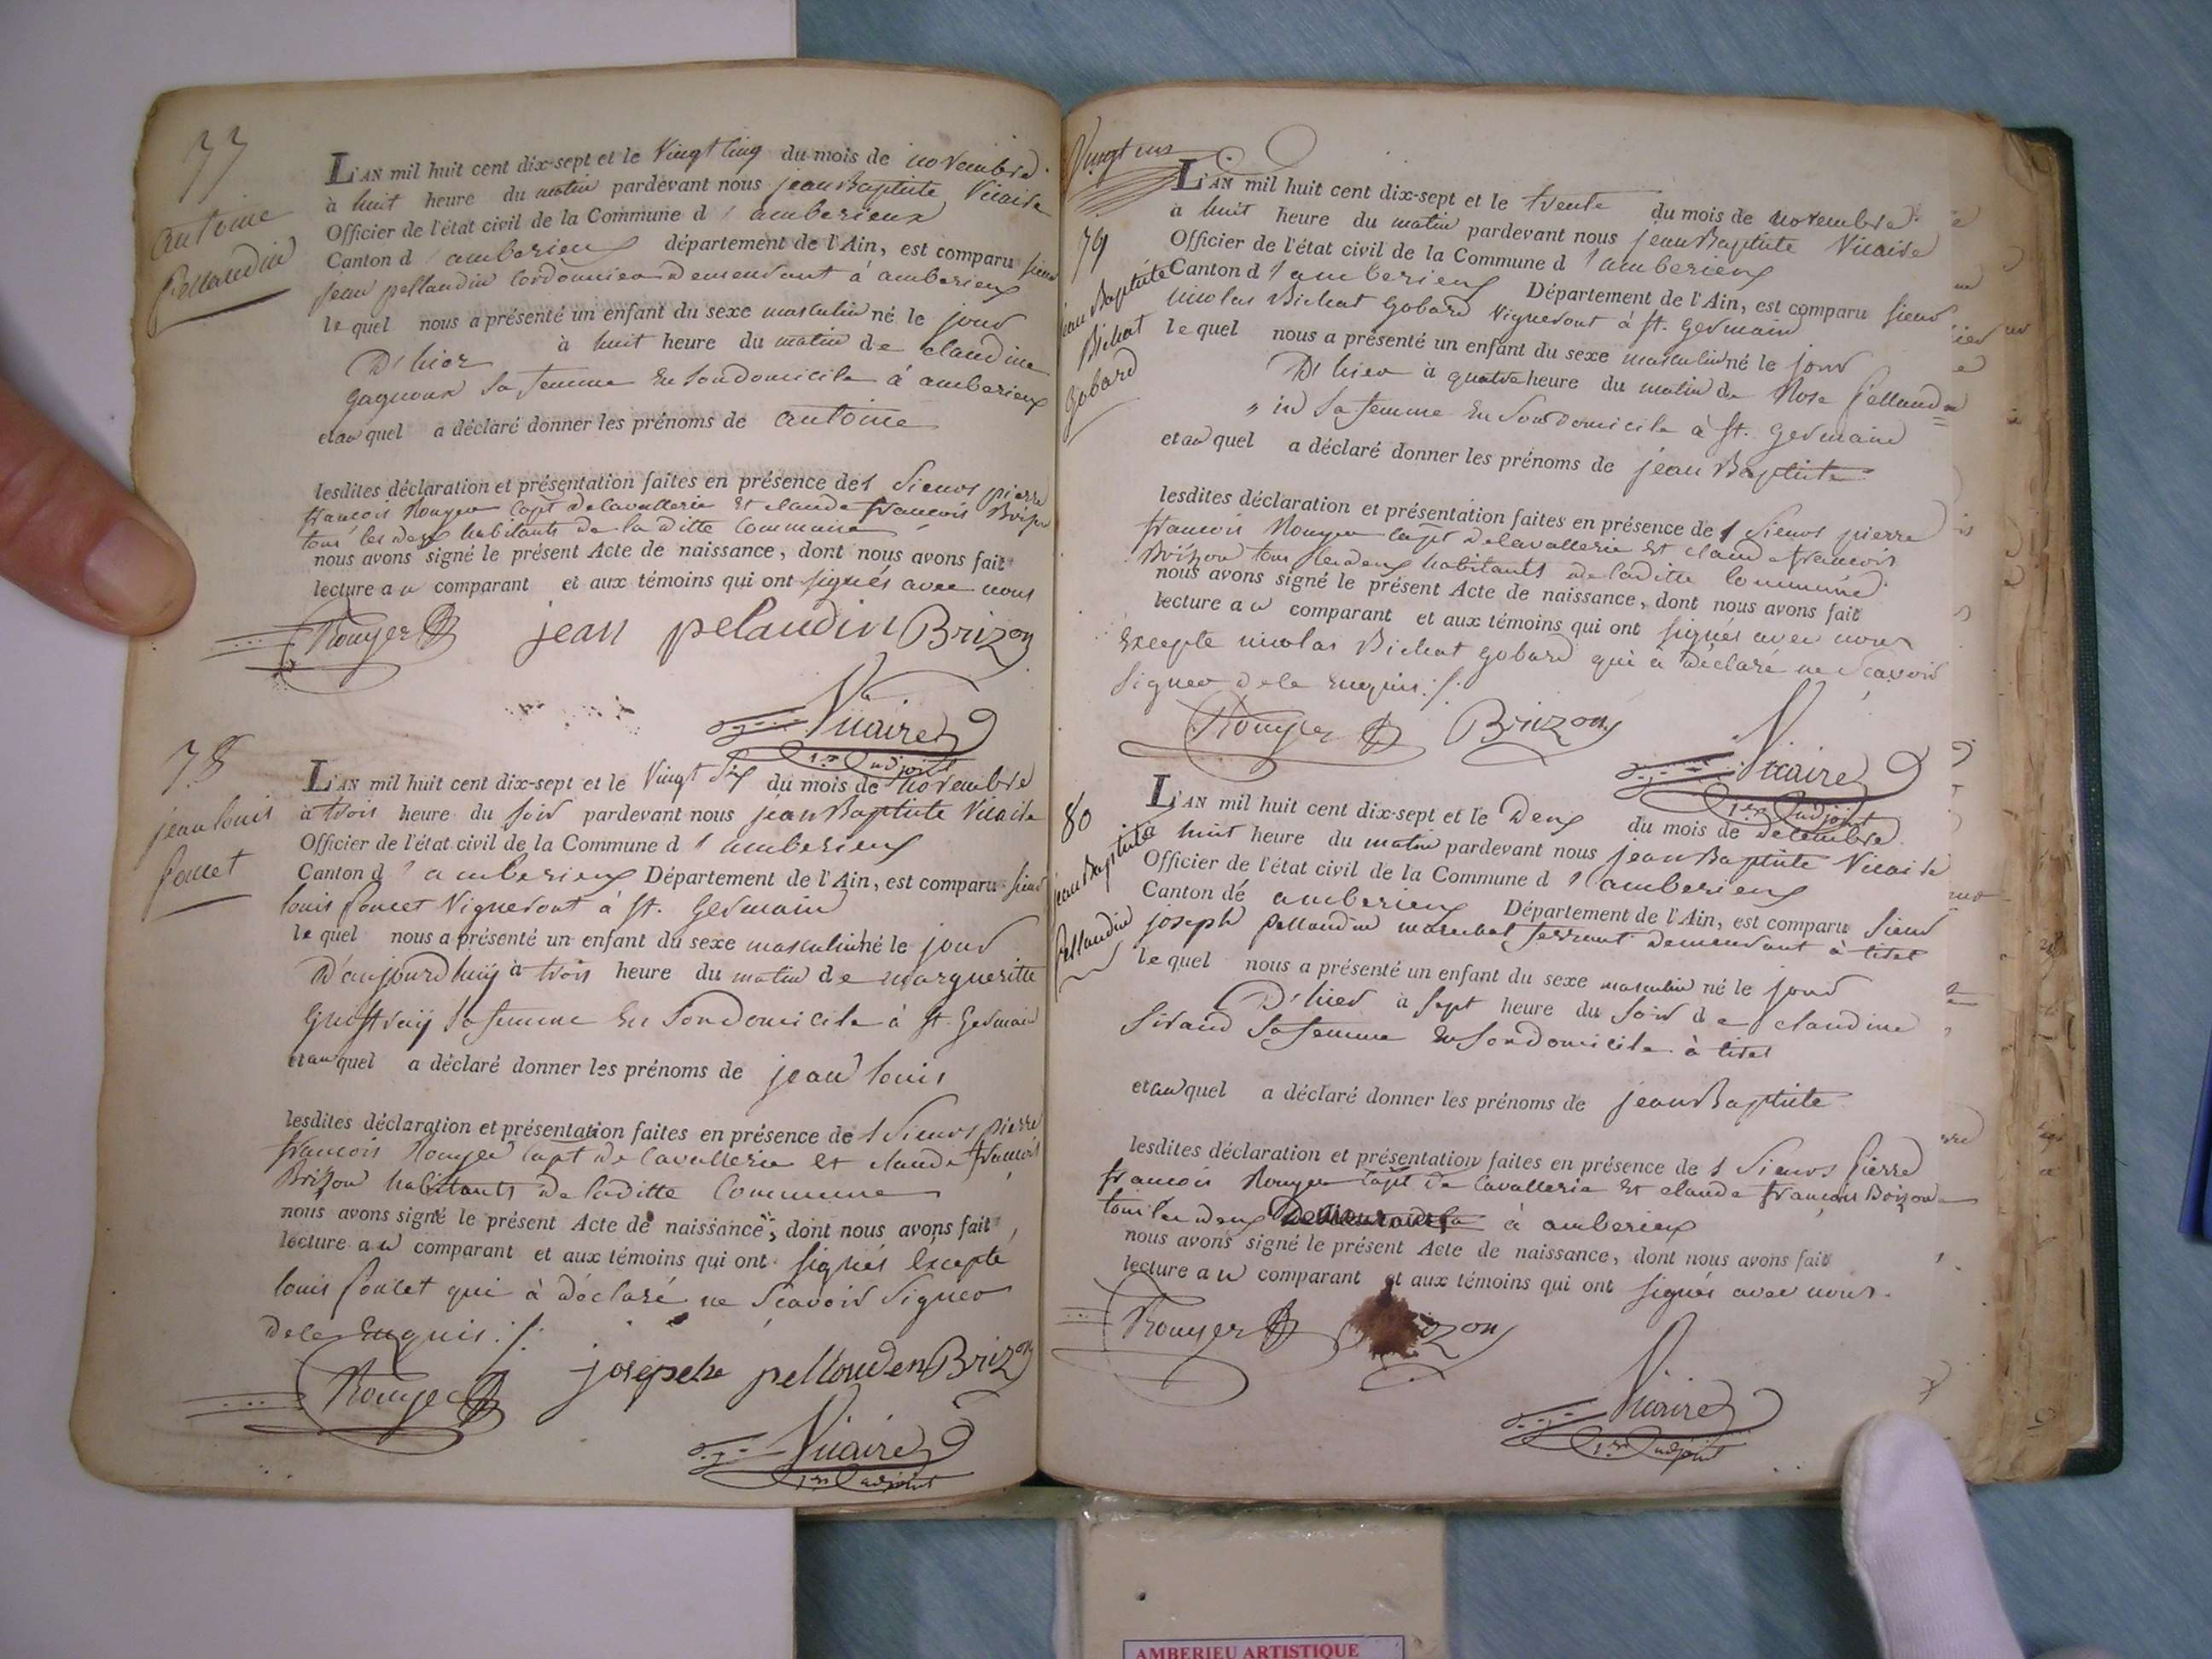 77
antoine
Pellaudin
L'AN mil huit cent dix-sept et le Vingt Cinq du mois de novembre
à huit heure du matin pardevant nous jean Baptiste Vicaire
Officier de l'état civil de la Commune d'amberieux
Canton d'amberieux département de l'Ain, est comparu sieur
jean pellaudin Cordonnier demeurant à amberieux
lequel nous a présenté un enfant du sexe masculin né le jour
D'hier à huit heure du matin de claudine
gagneux Sa femme En Son domicile à amberieux
et auquel a déclaré donner les prénoms de antoine
lesdites déclaration et présentation faites en présence des Sieurs pierre
francois Rouyer Capt de Cavallerie Et claude francois Brizon
tous les deux habitants de la ditte Commune
nous avons signé le présent Acte de naissance, dont nous avons fait
lecture au comparant et aux témoins qui ont signés avec nous
Rouyer jean pelaudin Brizon
Vicaire
1er adjoint
78
jean louis
poncet
L'AN mil huit cent dix-sept et le Vingt Six du mois de novembre
à trois heure du soir pardevant nous jean Baptiste Vicaire
Officier de l'état civil de la Commune d'amberieux
Canton d'amberieux Département de l'Ain, est comparu sieur
louis poncet Vigneront à St. Germain
lequel nous a présenté un enfant du sexe masculin né le jour
D'aujourdhuij à trois heure du matin de margueritte
Sa femme En Son domicile à St. Germain
et auquel a déclaré donner les prénoms de jean louis
lesdites déclaration et présentation faites en présence des Sieurs pierre
francois Rouyer Capt de Cavallerie et claude francois
Brizon habitants de laditte Commune
nous avons signé le présent Acte de naissance, dont nous avons fait
lecture au comparant et aux témoins qui ont signés Excepté
louis poncet qui à déclaré ne Scavoir Signer
de le Enquis ./.
Rouyer josepehe pellouden Brizon
Vicaire
1er adjoint
Vingt un
79
jean Baptiste
Bichat
Gobard
L'AN mil huit cent dix-sept et le trente du mois de novembre
à huit heure du matin pardevant nous jean Baptiste Vicaire
Officier de l'état civil de la Commune d'amberieux
Canton d'amberieux Département de l'Ain, est comparu sieur
nicolas Bichat Gobard Vigneront à St. Germain
lequel nous a présenté un enfant du sexe masculin né le jour
D'hier à quatre heure du matin de Rose pellaud=
" in Sa femme En Son domicile à St. Germain
et auquel a déclaré donner les prénoms de jean Baptiste
lesdites déclaration et présentation faites en présence des Sieurs pierre
francois Rouyer Capt de Cavallerie Et claude francois
Brizon tous les deux habitants de laditte Commune
nous avons signé le présent Acte de naissance, dont nous avons fait
lecture au comparant et aux témoins qui ont signés avec nous
Excepte nicolas Bichat gobard qui à déclaré ne Scavoir
Signer de le Enquis ./.
Rouyer Brizon
Vicaire
1er adjoint
80
jean Baptiste
Pellaudin
L'AN mil huit cent dix-sept et le Deux du mois de decembre
à huit heure du matin pardevant nous jean Baptiste Vicaire
Officier de l'état civil de la Commune d'amberieux
Canton dé amberieux Département de l'Ain, est comparu Sieur
joseph pellaudin marechal ferrant demeurant à tiret
lequel nous a présenté un enfant du sexe masculin né le jour
D'hier à Sept heure du Soir de claudine
Sirand Sa femme En Son domicile à tiret
et auquel a déclaré donner les prénoms de jean Baptiste
lesdites déclaration et présentation faites en présence des Sieurs pierre
francois Rouyer Capt de Cavallerie Et claude francois Brizon
tous les deux à amberieux
nous avons signé le présent Acte de naissance, dont nous avons fait
lecture au comparant et aux témoins qui ont signés avec nous.
Rouyer
Vicaire
1er adjoint
AMBERIEU ARTISTIQUE